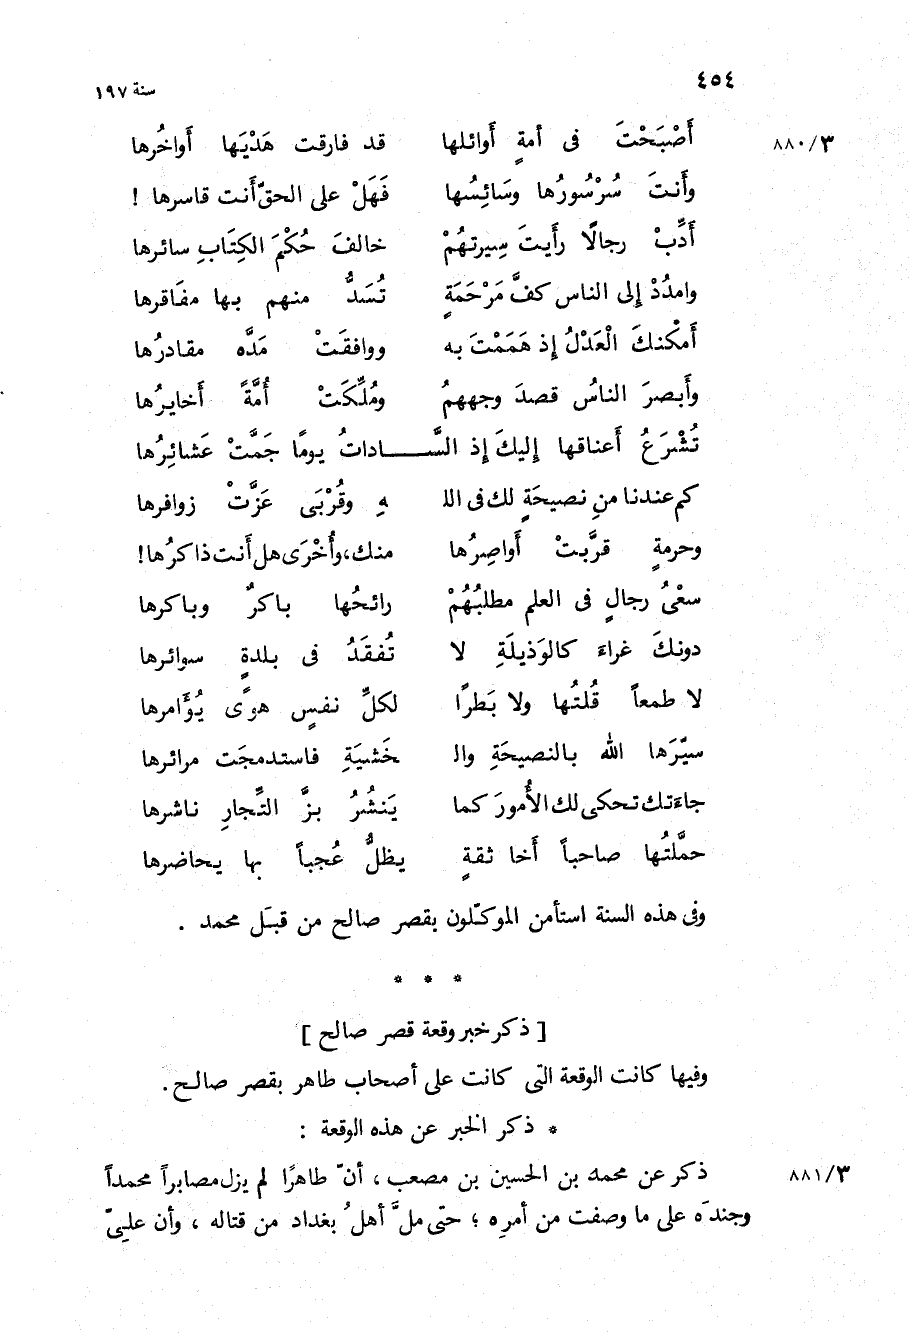 ٤٥٤ سنة ١٩٧
٨٨٠/٣ أَصْبَحْتَ فى أمةٍ أَوائلها قد فارقت هَدْيَها أَواخُرها
وأَنتَ سُرْسُورُها وسَائِسُها فَهَلْ على الحقّ أَنت قاسرها !
أَدِّبْ رجالًا رأَيتَ سِيرتهُمْ خالفَ حُكْمَ الكِتَابِ سائرها
وامدُدْ إلى الناس كفَّ مَرْحَمَةٍ تُسَدُّ منهم بها مفَاقرها
أَمكْنكَ الْعَدْلُ إذ هَمَمْتَ به ووافقَتْ مَدَّه مقادرُها
وأَبصرَ الناسُ قصدَ وجههمُ ومُلِّكَتْ أُمَّةً أَخايرُها
تُشْرَعُ أَعناقها إليكَ إذ السَّــــادَاتُ يومًا جَمَّتْ عَشائِرُها
كم عندنا منِ نصيحَةٍ لك فى الله وقُرْبَى عَزَّتْ زوافرها
وحرمةٍ قرَّبتْ أَواصِرُها منك، وأُخْرَى هل أَنت ذاكرُها!
سعْىُ رجالٍ فى العلم مطلبُهُمْ رائحُها باكرٌ وباكرها
دونكَ غراءَ كالوَذيلَةِ لا تُفقَدُ فى بلدةٍ سوائرها
لا طمعاً قُلتُها ولا بَطرًا لكلِّ نفسٍ هوًى يُؤَامرها
سيّرَها الله بالنصيحَةِ والـ خَشيَةِ فاستدمجَت مرائرها
جاءَتك تحكى لك الأُمورَ كما يَنشُرُ بزَّ التِّجارِ ناشرها
حمَّلتُها صاحباً أَخا ثقةٍ يظلُّ عُجباً بها يحاضرها
وفى هذه السنة استأمن الموكّلون بقصر صالح من قِبَل محمد .
* * *
[ ذكر خبر وقعة قصر صالح ]
وفيها كانت الوقعة التى كانت على أصحاب طاهر بقصر صالح .
* ذكر الخبر عن هذه الوقعة :
٨٨١/٣ ذكر عن محمد بن الحسين بن مصعب ، أنّ طاهرًا لم يزل مصابراً محمداً
وجندَه على ما وصفت من أمره ؛ حتى ملَّ أهلُ بغداد من قتاله ، وأن علىّ